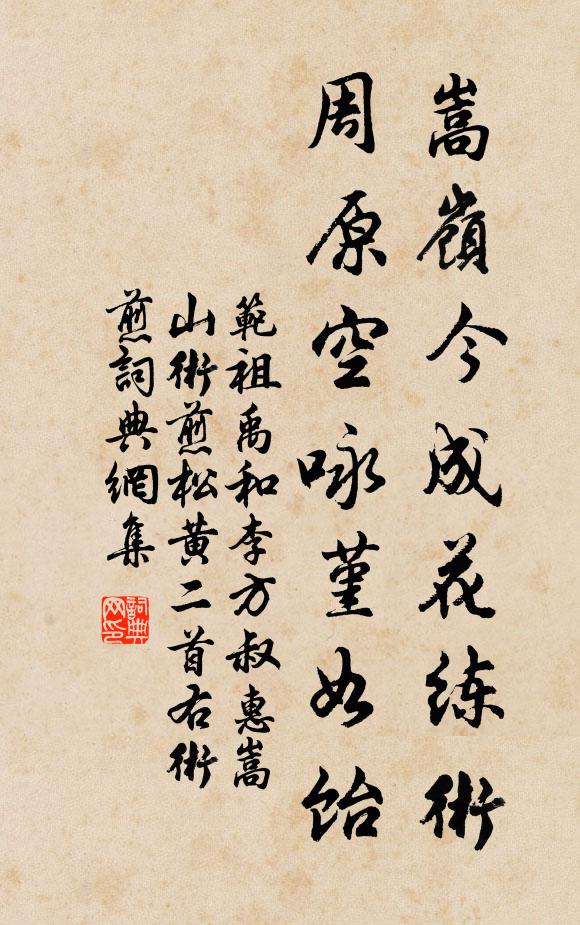 嵩嶺今成花练術
周原空咏堇如飴
範祖禹和李方叔惠嵩
山術煎松黄二首右術
煎詞典網集
詞典网印